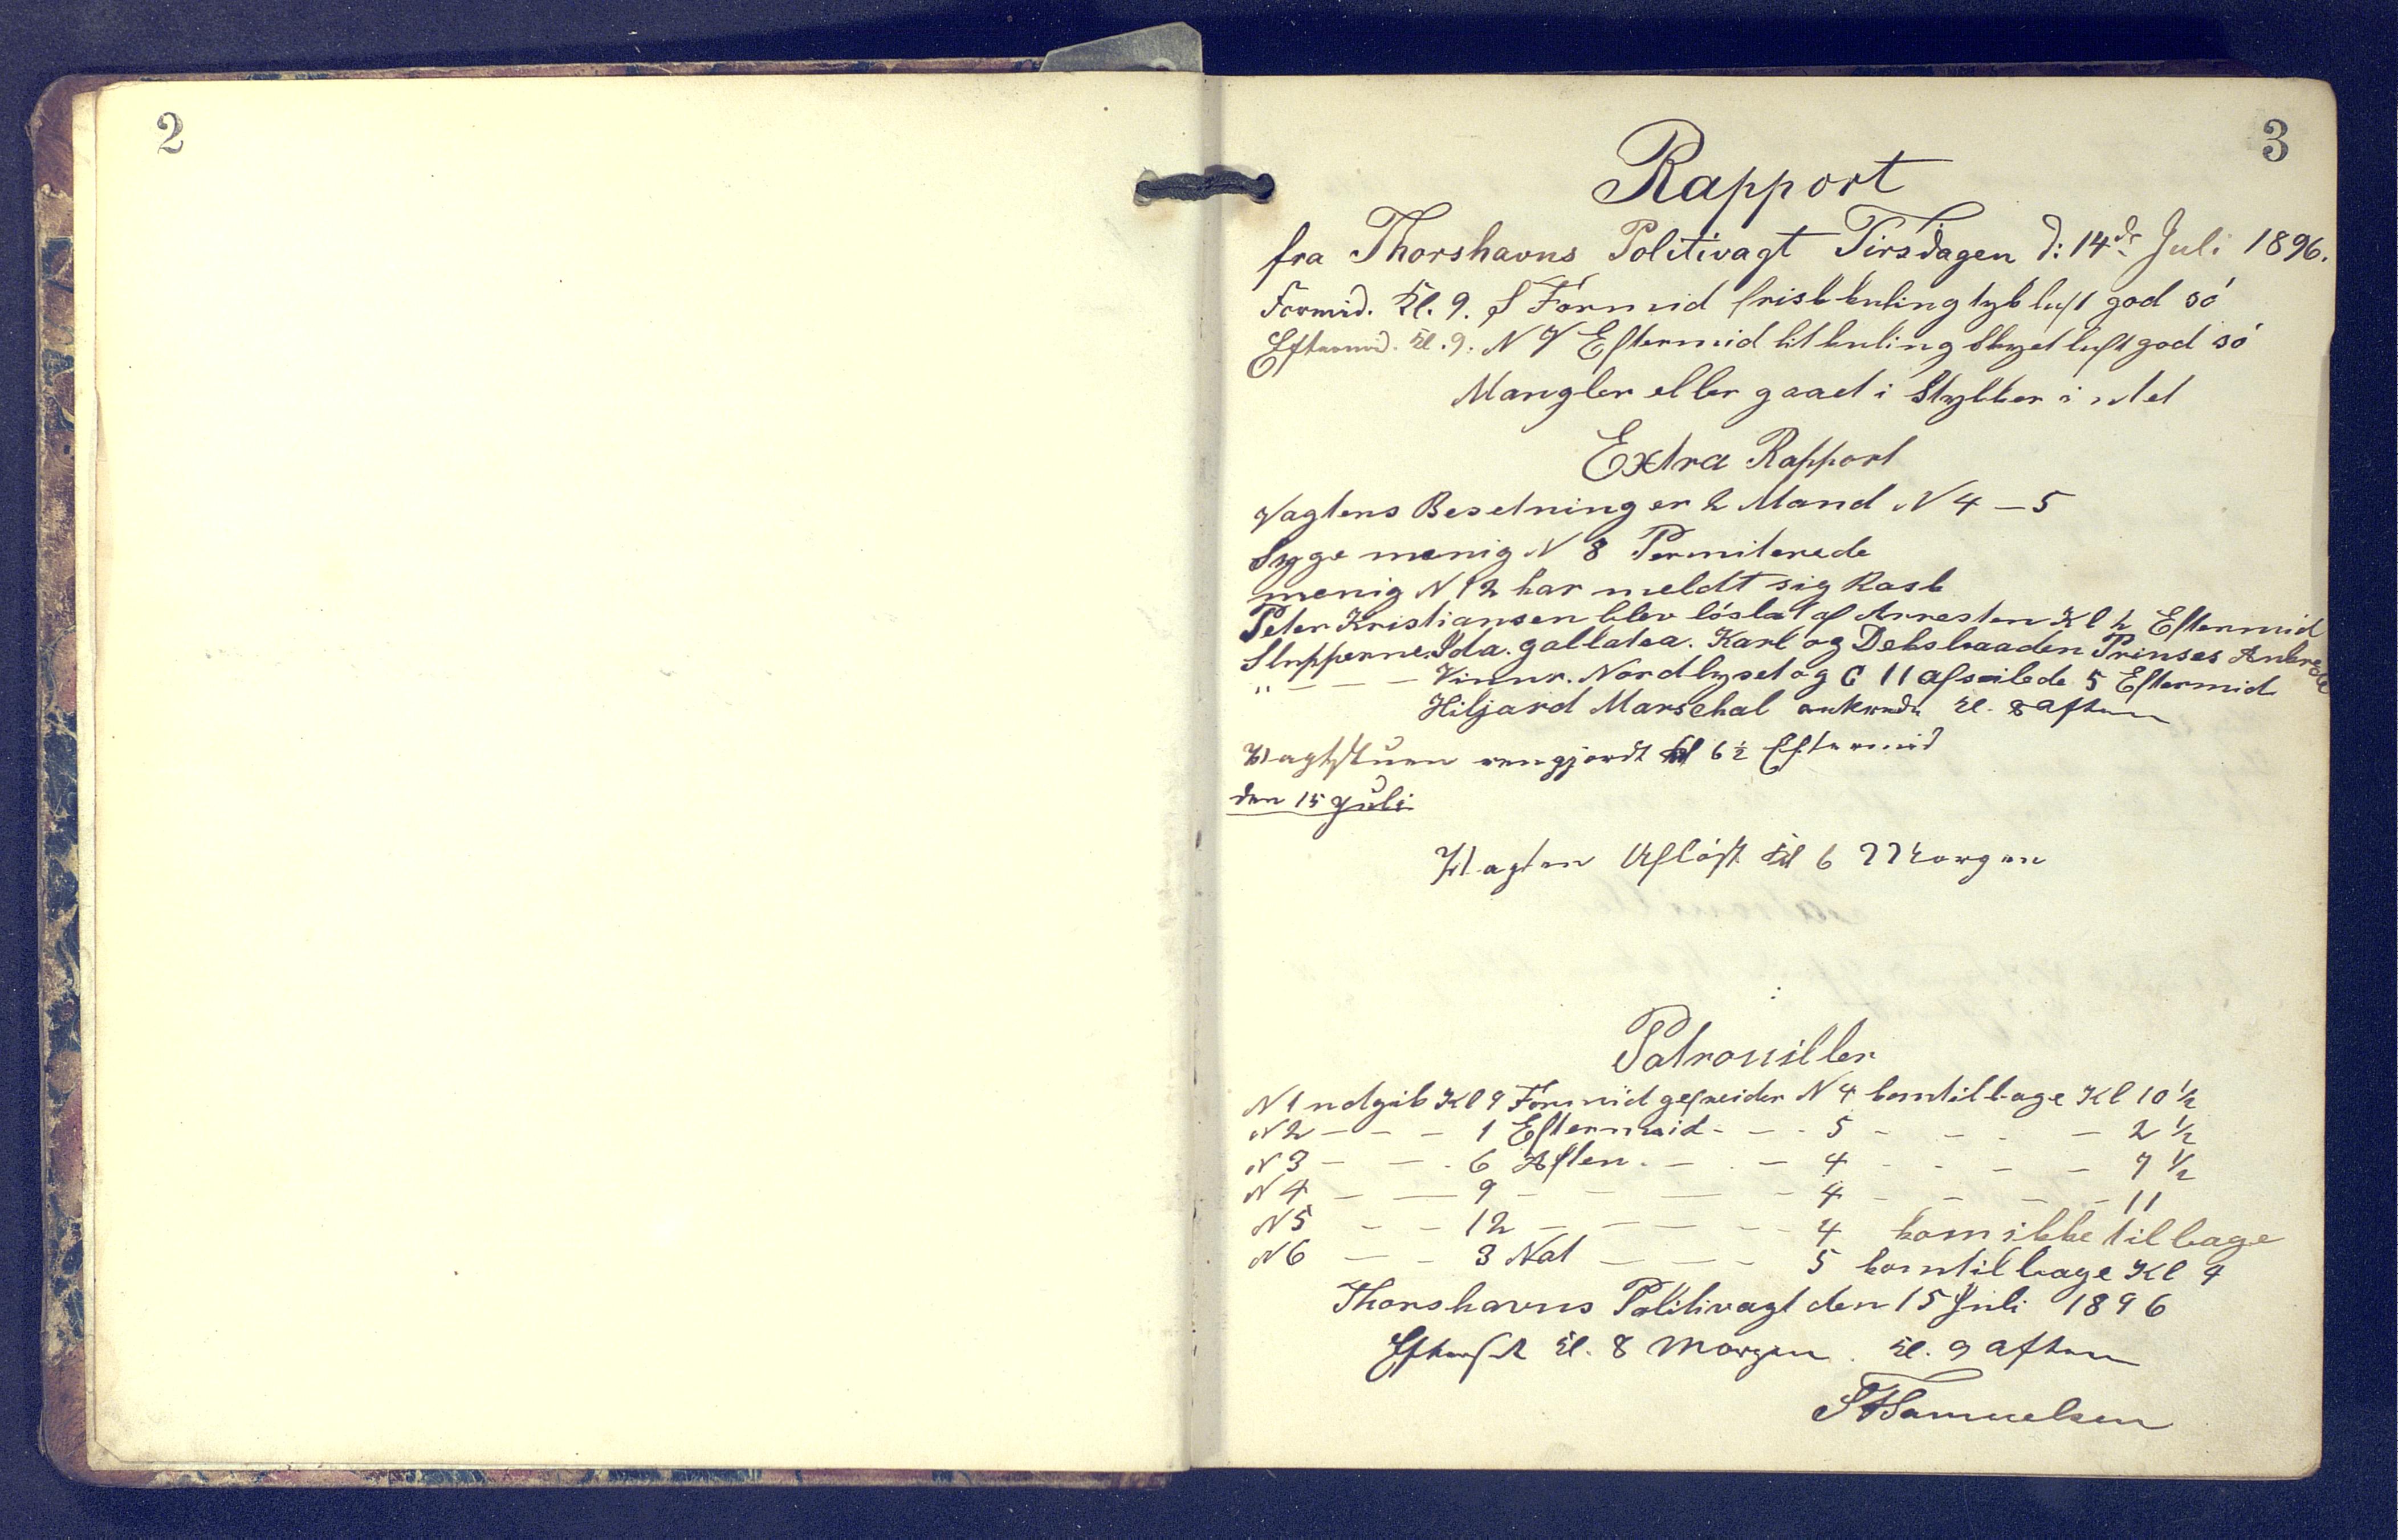 2
3
Rapport
fra Thorshavns Politivagt Tirsdagen d: 14de Juli 1896.
Formid. Kl. 9. S Formid frisk kuling tyk luft god só
Eftermid. Kl. 9. N V Eftermid lit kuling Skyet luft god só
Mangler eller gaaet i Stykker intet
Extra Rapport
Vagtens Besetning er 2 Mand N 4 – 5
Syge menig N 8 Permiterede
menig N 12 har meldt sig Rask
Peter Kristiansen blev lóslat af Arresten Kl 2 Eftermid
Slupperne. Ida. gallatea. Karl og Deksbaaden Prinses Ankrede
" – – – Vinnr. Nordlyset og C 11 afseilede 5 Eftermid
Hiljard Marschal ankrede Kl. 8 Aften
Vagtstuen rengjordt Kl 6½ Eftermid
den 15 Juli
Vagten Aflóst Kl 6 Morgen
Patrouiller
N 1 udgik Kl 9 Formid gefreider N 4 kom tilbage Kl 10 ½
N 2 – – – 1 Eftermid – – – 5 – – – – 2 ½
N 3 – – – 6 Aften – – – 4 – – – – 7 ½
N 4 – – 9 – – – – 4 – – – – 11
N 5 – – 12 – – – – 4 kom ikke tilbage
N 6 – – 3 Nat – – – 5 kom tilbage Kl 4
Thorshavns Politivagt den 15 Juli 1896
Kl. 8 Morgen. Kl. 9 Aften
Samuelsen